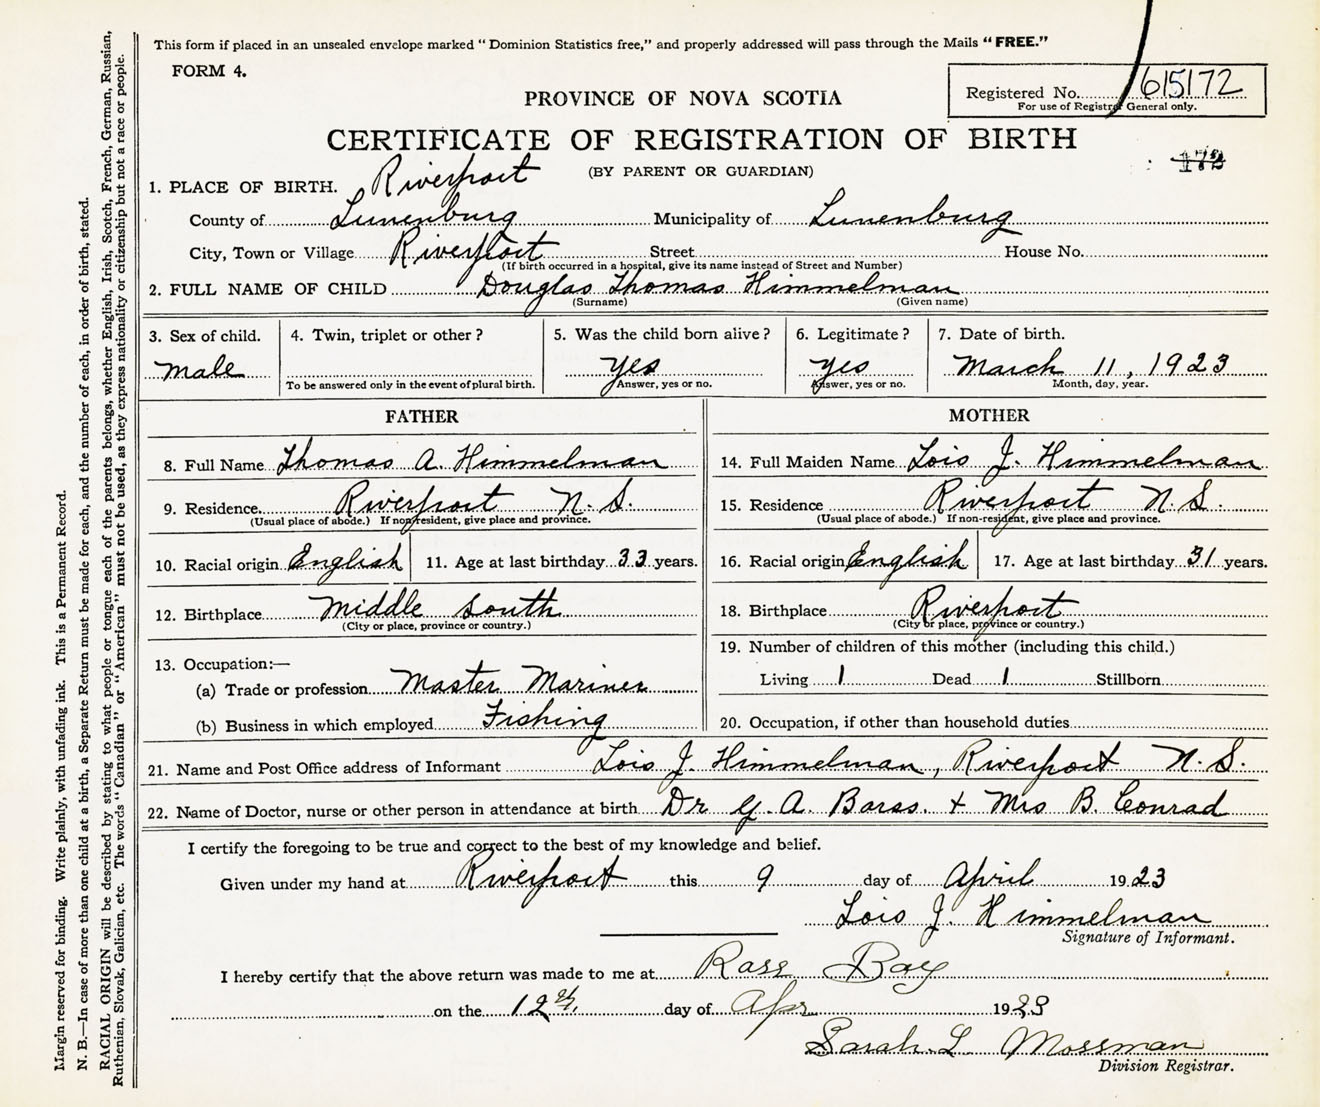 This form if placed in an unsealed envelope marked "Dominion Statistics free," and properly addressed will pass through the Mails "FREE."
FORM 4.
Registered No. 615172
For use of Registrar General only.
PROVINCE OF NOVA SCOTIA
CERTIFICATE OF REGISTRATION OF BIRTH
(BY PARENT OR GUARDIAN)
1. PLACE OF BIRTH. Riverport
County of Lunenburg Municipality of Lunenburg
City, Town or Village Riverport Street House No.
(If birth occurred in a hospital, give its name instead of Street and Number)
2. FULL NAME OF CHILD Douglas Thomas Himmelman
(Surname) (Given name)
3. Sex of child. 4. Twin, triplet or other? 5. Was the child born alive? 6. Legitimate? 7. Date of birth.
Male yes yes March 11, 1923
To be answered only in the event of plural birth. Answer, yes or no. Answer, yes or no. Month, day, year.
FATHER
8. Full Name Thomas A. Himmelman
9. Residence. Riverport N.S.
(Usual place of abode.) If non-resident, give place and province.
10. Racial origin English 11. Age at last birthday 33 years.
12. Birthplace Middle South
(City or place, province or country.)
13. Occupation:—
(a) Trade or profession Master Mariner
(b) Business in which employed Fishing
MOTHER
14. Full Maiden Name Lois J. Himmelman
15. Residence Riverport N.S.
(Usual place of abode.) If non-resident, give place and province.
16. Racial origin English 17. Age at last birthday 31 years.
18. Birthplace Riverport
(City or place, province or country.)
19. Number of children of this mother (including this child.)
Living 1 Dead 1 Stillborn
20. Occupation, if other than household duties
21. Name and Post Office address of Informant Lois J. Himmelman, Riverport N.S.
22. Name of Doctor, nurse or other person in attendance at birth Dr A. Barss. + Mrs B. Conrad
I certify the foregoing to be true and correct to the best of my knowledge and belief.
Given under my hand at Riverport this 9 day of April 1923
Lois J. Himmelman
Signature of Informant.
I hereby certify that the above return was made to me at Rose Bay
on the 12th day of Apr 1923
Sarah L. Mossman
Division Registrar.
Margin reserved for binding. Write plainly, with unfading ink. This is a Permanent Record.
N. B.—In case of more than one child at a birth, a Separate Return must be made for each, and the number of each, in order of birth, stated.
RACIAL ORIGIN will be described by stating to what people or tongue each of the parents belongs, whether English, Irish, Scotch, French, German, Russian,
Ruthenian, Slovak, Galician, etc. The words "Canadian" or "American" must not be used, as they express nationality or citizenship but not a race or people.